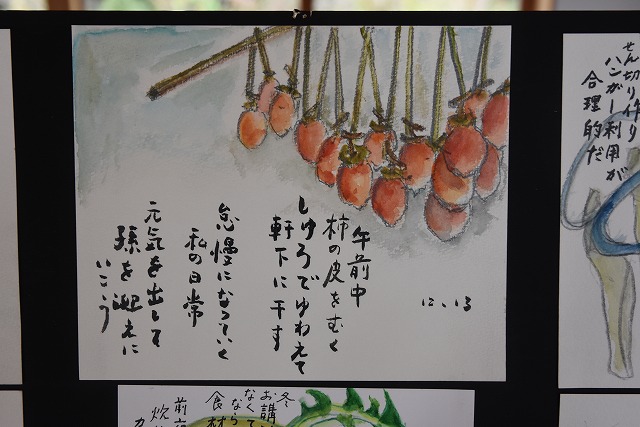 午前中
柿の皮をむく
しゅろでゆわえて
軒下に干す
怠慢になっていく
私の日常
元気を出して
孫を迎えに
いこう
12.13
せん切り作り
ハンガー利用が
合理的だ
冬
お講
なくて
なら
食材
前
炊